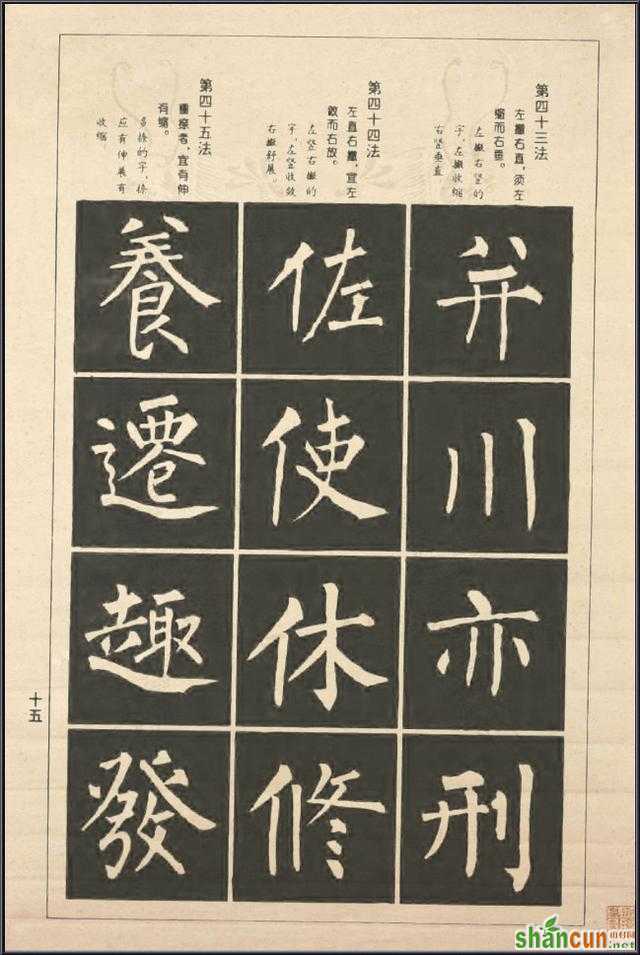 第四十三法
左撇右直,须左
缩而右垂。
左撇右竖的
字,左撇收缩
右竖垂直
并川亦刑
第四十四法
左直右撇,宜左
敛而右放。
左竖右撇的
字,左竖收敛
右撇舒展。
佐使休修
第四十五法
重捺者,宜有伸
有缩。
多捺的字,捺
应有伸展有
收缩
養遷趣發
十五
shancun
山村网
.net